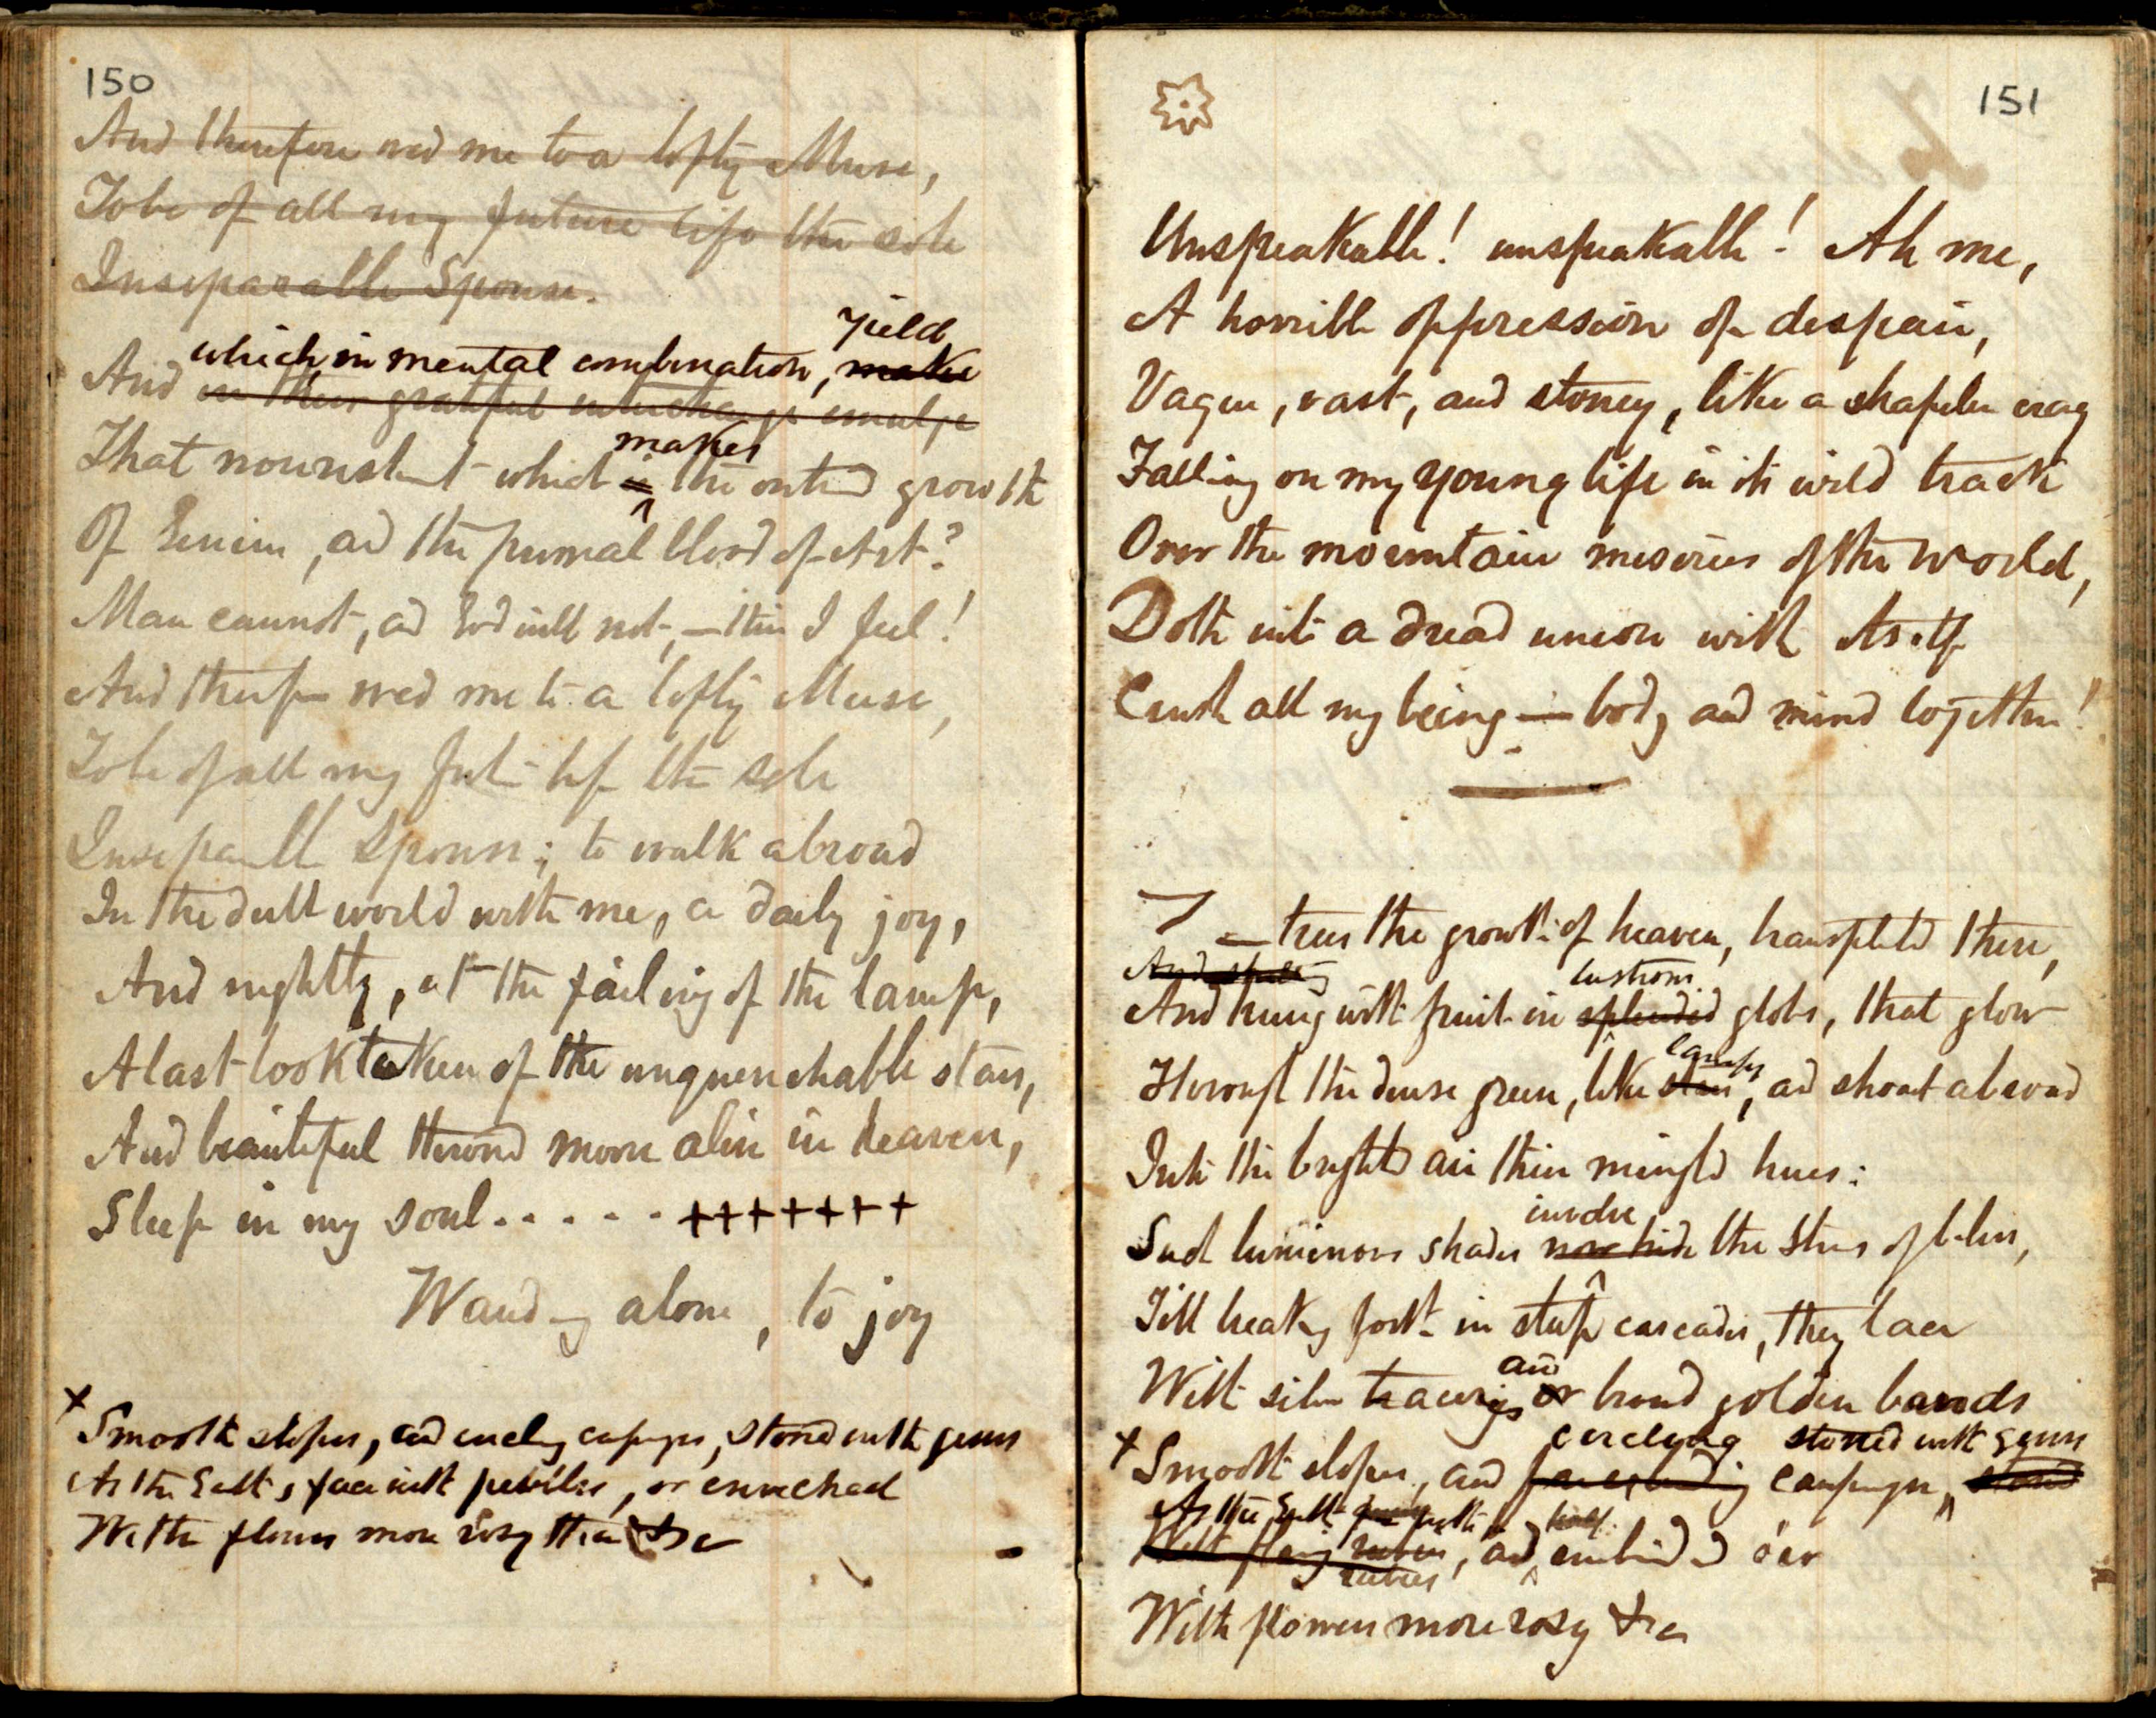 150
And therefore wed me to a lofty Muse,
To be of all my future life the sole
Inseparable Spouse.
yield
which, in mental combination, make
And in their grateful interchange emulge
makes
That nourishment which is the outward growth
Of Genius, and the primal blood of Art?
Man cannot, ad God will not, – this I feel!
And therefore wed me to a lofty Muse,
To be of all my future life the sole
Inseparable Spouse; to walk abroad
In the dull world with me, a daily joy,
And nightly, at the failing of the lamp,
A last look taken of the unquenchable stars,
And beautiful throned moon alive in heaven,
Sleep in my soul. . . . . . +++++++
Wanding alone, to joy
+
Smooth slopes, and circling campaigns, stoned with gems
As the Earth's face with pebbles, or enriched
With flowers more rosy than &c
151
Unspeakable! unspeakable! Ah me,
A horrible oppression of despair,
Vague, vast, and stoney, like a shapeless crag
Falling on my young life in its wild track
Over the mountain miseries of the world,
Doth into a dread union with itself
Crush all my being — body and mind together!
7 — trees the growth of heaven, transplanted there,
And
lustrous
And hung with fruit in splendid globes, that glow
lamps
Through the dense green, like stars, ad shoot abroad
Into the brighted air their mingled hues:
involve
Such luminous shades now hide the streams
Till breaking forth in steep cascades, they lace
and
With silver tracerings or broad golden bands
circling stoned with gems
+ Smooth slopes, and campaigns,
As the Earth with half
With rubies, and, embrined o'er
rubies
With flowers more rosy &c